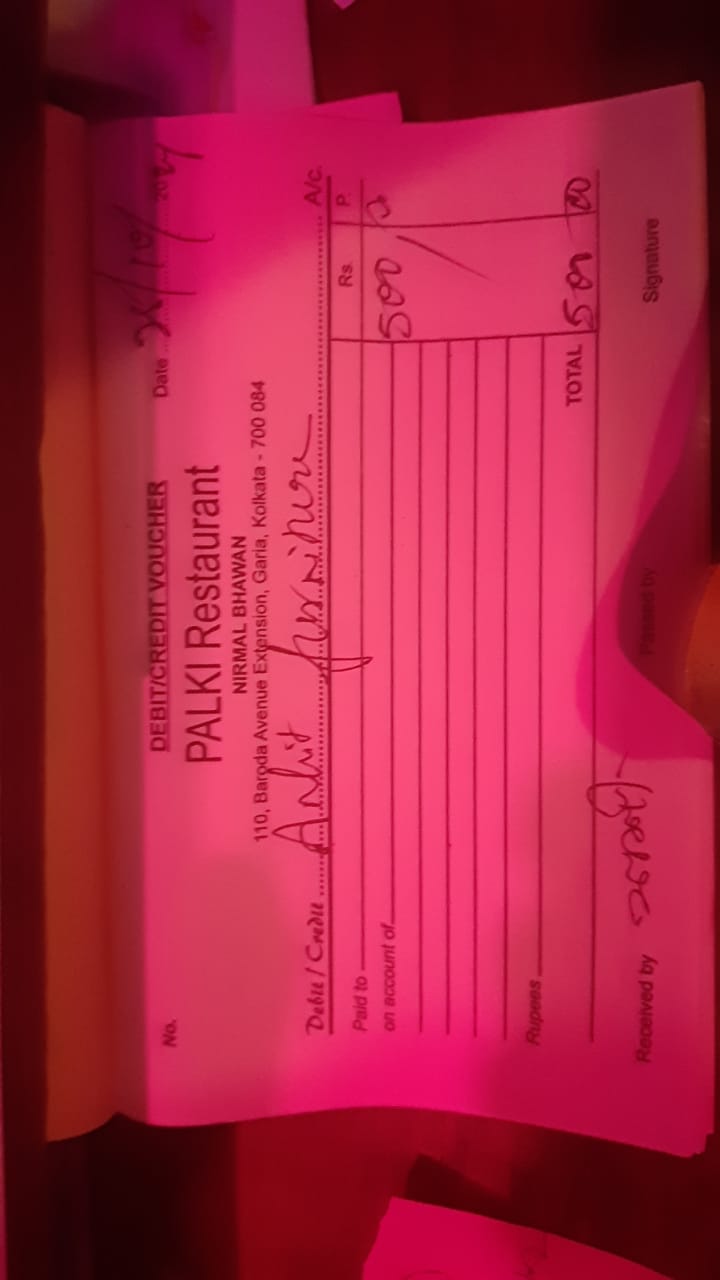 DEBIT/CREDIT VOUCHER
No. Date 20
PALKI Restaurant
NIRMAL BHAWAN
110, Baroda Avenue Extension, Garia, Kolkata - 700 084
Debit / Credit Ankit furniture A/c.
Paid to Rs. P.
on account of 500/
Rupees
TOTAL 500 00
Received by Passed by Signature